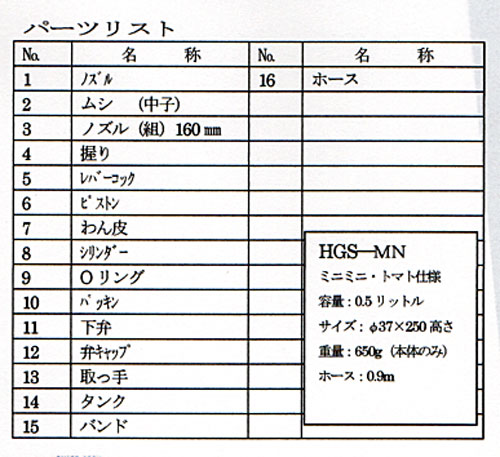 パーツリスト
No. 名 称 No. 名 称
1 ﾉｽﾞﾙ 16 ホース
2 ムシ （中子）
3 ノズル（組）160㎜
4 握り
5 ﾚﾊﾞｰｺｯｸ
6 ﾋﾟｽﾄﾝ
7 わん皮
8 ｼﾘﾝﾀﾞｰ
9 Oリング
10 ﾊﾟｯｷﾝ
11 下弁
12 弁ｷｬｯﾌﾟ
13 取っ手
14 タンク
15 バンド
HGS―MN
ミニミニ・トマト仕様
容量：0.5リットル
サイズ：φ37×250高さ
重量：650g（本体のみ）
ホース：0.9m